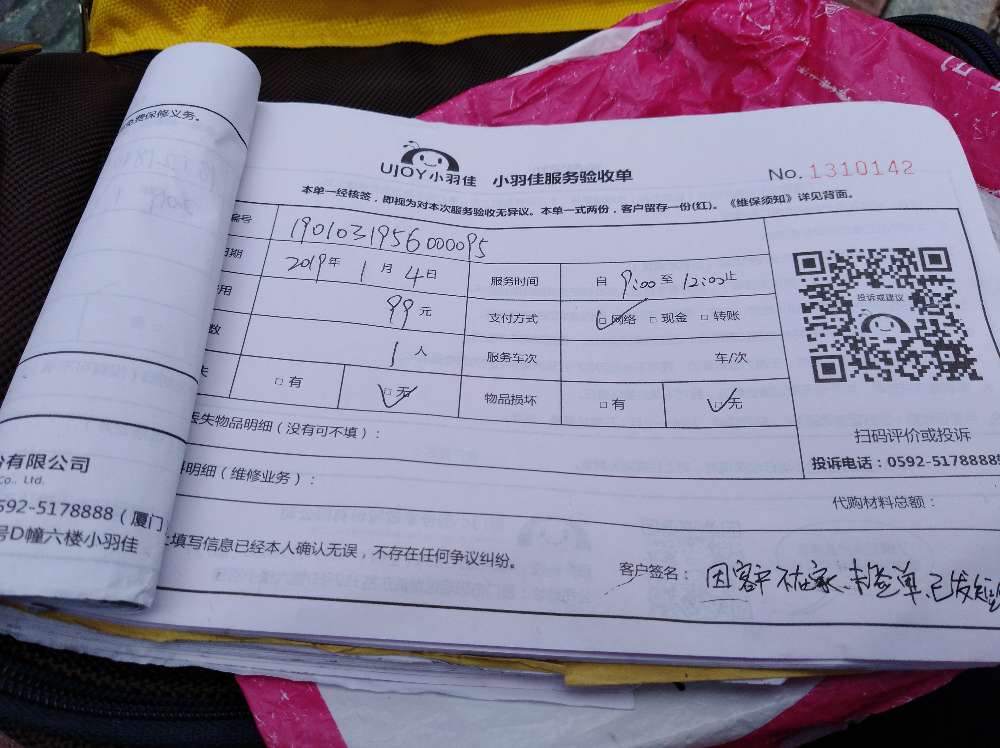 免费保修义务。
UJOY小羽佳 小羽佳服务验收单 No. 1310142
本单一经核签，即视为对本次服务验收无异议。本单一式两份，客户留存一份(红)。《维保须知》详见背面。
编号 1901031956000095
日期 2019年 1月 4日 服务时间 自 9:00 至 12:00 止
用 99 元 支付方式 ☑网络 □现金 □转账
数 1 人 服务车次 车/次
失 □有 ☑无 物品损坏 □有 ☑无
投诉或建议
扫码评价或投诉
投诉电话：0592-5178888
丢失物品明细（没有可不填）：
料明细（维修业务）：
代购材料总额：
上填写信息已经本人确认无误，不存在任何争议纠纷。
客户签名： 因客户不在家、未签单、已发短
份有限公司
Co., Ltd.
592-5178888（厦门
号D幢六楼小羽佳